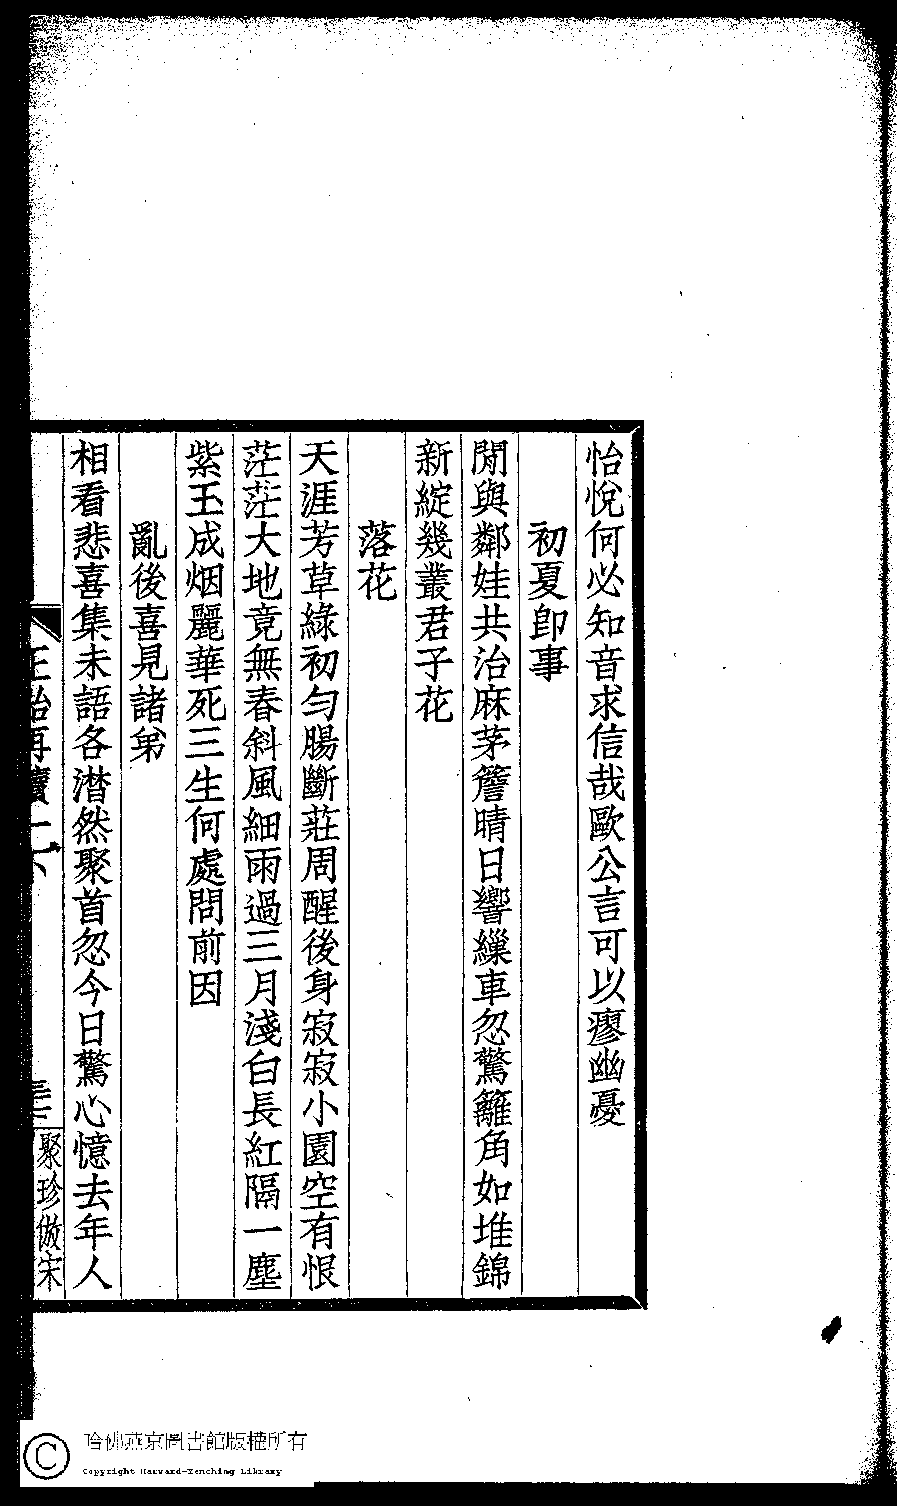 怡悅何必知音求信哉歐公言可以瘳幽憂
初夏卽事
閒與鄰娃共治麻茅簷晴日響繅車忽驚籬角如堆錦
新綻幾叢君子花
落花
天涯芳草綠初勻腸斷莊周醒後身寂寂小園空有恨
茫茫大地竟無春斜風細雨過三月淺白長紅隔一塵
紫玉成烟麗華死三生何處問前因
亂後喜見諸弟
相看悲喜集未語各潸然聚首忽今日驚心憶去年人
聚珍倣宋
哈佛燕京圖書館版權所有
Copyright Harvard-Yenching Library